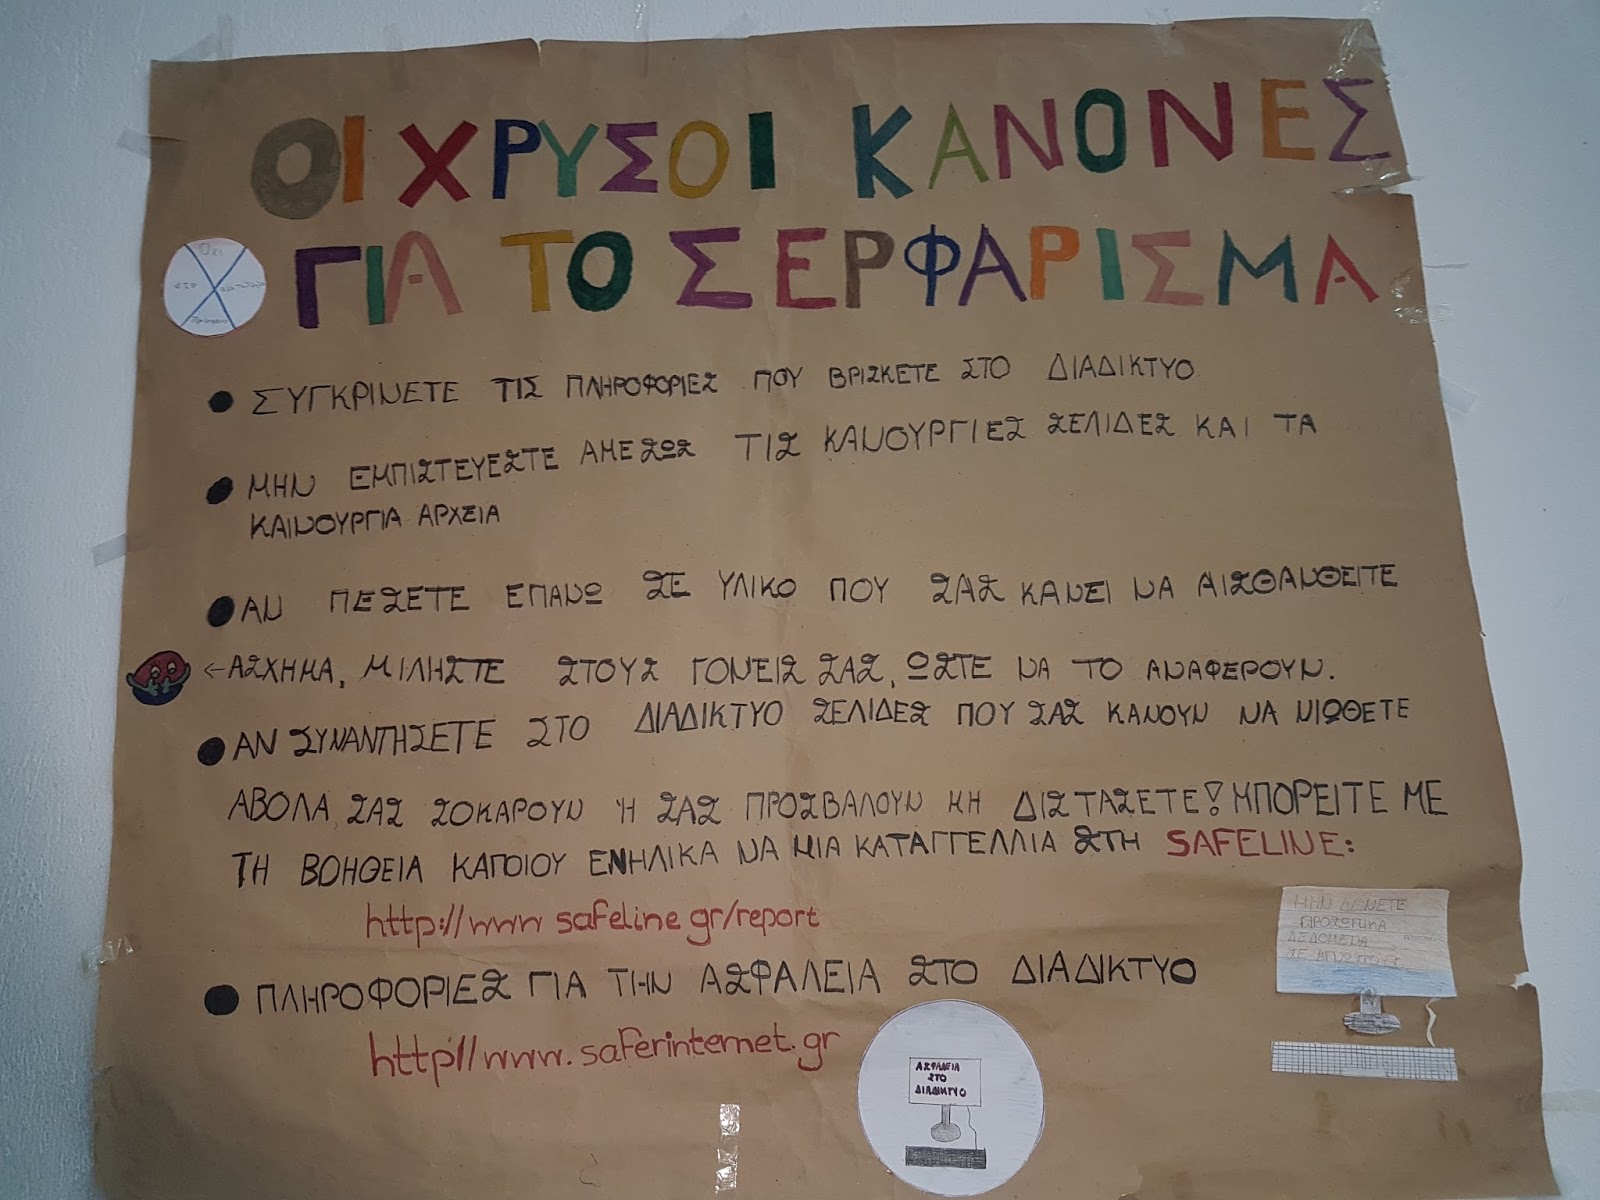 ΟΙ ΧΡΥΣΟΙ ΚΑΝΟΝΕΣ
ΓΙΑ ΤΟ ΣΕΡΦΑΡΙΣΜΑ
ΟΧΙ
ΣΤΟ
• ΣΥΓΚΡΙΝΕΤΕ ΤΙΣ ΠΛΗΡΟΦΟΡΙΕΣ ΠΟΥ ΒΡΙΣΚΕΤΕ ΣΤΟ ΔΙΑΔΙΚΤΥΟ
• ΜΗΝ ΕΜΠΙΣΤΕΥΕΣΤΕ ΑΜΕΣΩΣ ΤΙΣ ΚΑΝΟΥΡΓΙΕΣ ΣΕΛΙΔΕΣ ΚΑΙ ΤΑ
ΚΑΙΝΟΥΡΓΙΑ ΑΡΧΕΙΑ
• ΑΝ ΠΕΣΕΤΕ ΕΠΑΝΩ ΣΕ ΥΛΙΚΟ ΠΟΥ ΣΑΣ ΚΑΝΕΙ ΝΑ ΑΙΣΘΑΝΘΕΙΤΕ
←ΑΣΧΗΜΑ, ΜΙΛΗΣΤΕ ΣΤΟΥΣ ΓΟΝΕΙΣ ΣΑΣ, ΩΣΤΕ ΝΑ ΤΟ ΑΝΑΦΕΡΟΥΝ.
• ΑΝ ΣΥΝΑΝΤΗΣΕΤΕ ΣΤΟ ΔΙΑΔΙΚΤΥΟ ΣΕΛΙΔΕΣ ΠΟΥ ΣΑΣ ΚΑΝΟΥΝ ΝΑ ΝΙΩΘΕΤΕ
ΑΒΟΛΑ, ΣΑΣ ΣΟΚΑΡΟΥΝ Ή ΣΑΣ ΠΡΟΣΒΑΛΟΥΝ ΜΗ ΔΙΣΤΑΣΕΤΕ! ΜΠΟΡΕΙΤΕ ΜΕ
ΤΗ ΒΟΗΘΕΙΑ ΚΑΠΟΙΟΥ ΕΝΗΛΙΚΑ ΝΑ ΜΙΑ ΚΑΤΑΓΓΕΛΛΙΑ ΣΤΗ SAFELINE:
http://www safeline gr/report
• ΠΛΗΡΟΦΟΡΙΕΣ ΓΙΑ ΤΗΝ ΑΣΦΑΛΕΙΑ ΣΤΟ ΔΙΑΔΙΚΤΥΟ
http//www.saferinternet.gr
ΜΗΝ ΔΙΝΕΤΕ
ΠΡΟΣΩΠΙΚΑ
ΔΕΔΟΜΕΝΑ
ΣΕ ΑΓΝΩΣΤΟΥΣ
ΑΣΦΑΛΕΙΑ
ΣΤΟ
ΔΙΑΔΙΚΤΥΟ